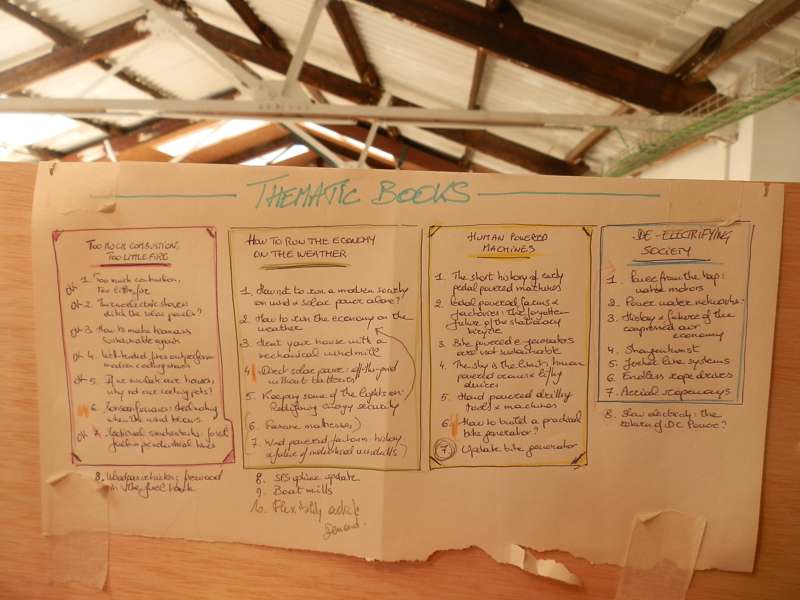 THEMATIC BOOKS
TOO MUCH COMBUSTION,
TOO LITTLE FIRE
ok 1. Too much combustion,
Too little fire
ok 2. Thermoelectric stoves:
ditch the solar panels?
ok 3. How to make biomass
sustainable again
ok 4. Well-tended fires outperform
modern cooking stoves
ok 5. If we insulate our houses,
why not our cooking pots?
6.
when the wind blows
ok 7. fossil
fuels in pre-industrial times
8. firewood
in the fuel tank
HOW TO RUN THE ECONOMY
ON THE WEATHER
1. How not to run a modern society
on wind & solar power alone?
2. How to run the economy on the
weather
3. Heat your house with a
mechanical windmill
4. Direct solar power: off-the-grid
without batteries
5. Keeping some of the lights on:
Redefining energy security
6.
7. Wind powered factories: history
& future of industrial windmills
8. update
9. Boat mills
10. Flexibility
demand.
HUMAN POWERED
MACHINES
1. The short history of early
pedal powered machines
2. Pedal powered farms &
factories: the forgotten
future of the stationary
bicycle
3. Bike powered generators
are not sustainable
4. The sky is the limit: human
powered cranes & lifting
devices
5. Hand powered drilling
tools & machines
6. How to build a practical
bike generator?
7. Update bike generator
DE-ELECTRIFYING
SOCIETY
1. Power from the tap:
water motors
2. Power water networks:
3. History & future of the
compressed air
economy
4.
5. Jerker line systems
6. Endless rope drives
7. Aerial ropeways
8. Slow electricity: the
return of DC Power?